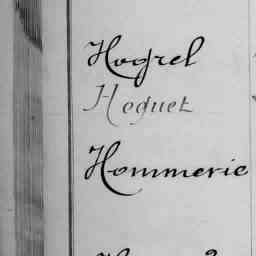 Hogrel
Hoguet
Hommerie